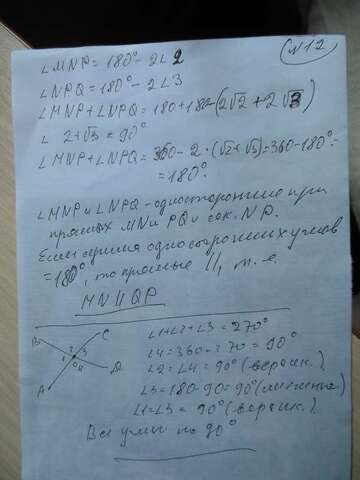 N12
∠MNP = 180° - 2∠2
∠NPQ = 180° - 2∠3
∠MNP + ∠NPQ = 180 + 180 - (2√2 + 2√3)
∠ 2 + √3 = 90°
∠MNP + ∠NPQ = 360 - 2 · (√2 + √3) = 360 - 180° =
= 180°.
∠MNP и ∠NPQ - односторонние при
прямых MN и PQ и сек. NP.
Если сумма односторонних углов
= 180°, то прямые ||, т. е.
MN || QP
B C 2 1 3 4 O A D
∠1 + ∠2 + ∠3 = 270°
∠4 = 360 - 270 = 90°
∠2 = ∠4 = 90° (вертик.)
∠3 = 180 - 90 = 90°
∠1 = ∠3 = 90° (вертик.)
Все углы по 90°